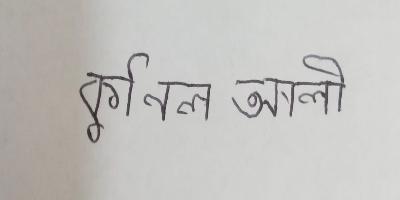 কুর্নিল আলী